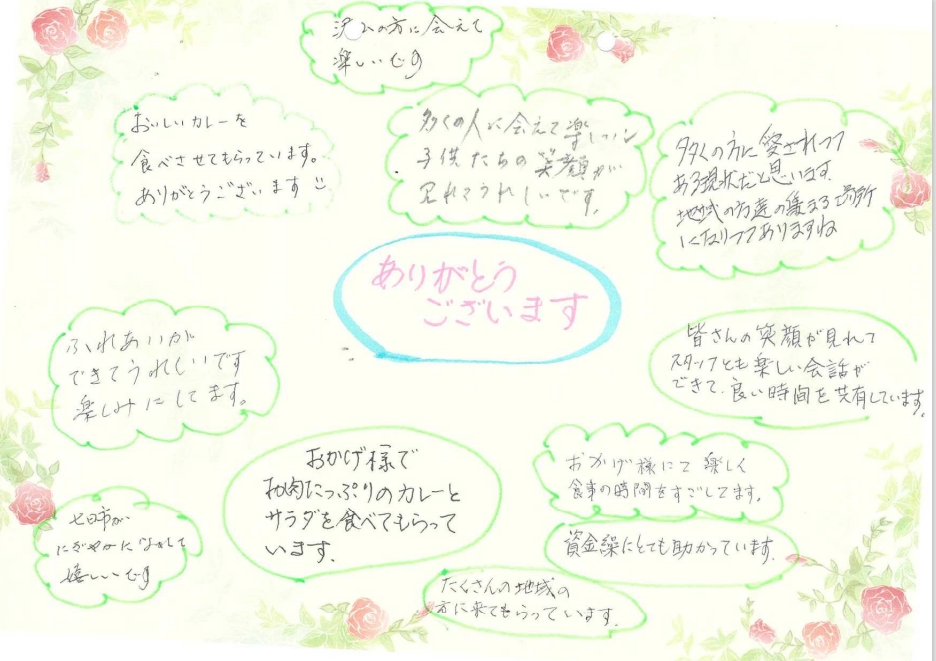 沢山の方に会えて
楽しいです
おいしいカレーを
食べさせてもらっています。
ありがとうございます
多くの人に会えて楽しい
子供たちの笑顔が
見れてうれしいです。
多くの方に愛されつつ
ある現状だと思います。
地域の方達の集まる場所
になりつつありますね
ありがとう
ございます
ふれあいが
できてうれしいです
楽しみにしてます。
皆さんの笑顔が見れて
スタッフとも楽しい会話が
できて、良い時間を共有しています。
おかげ様で
お肉たっぷりのカレーと
サラダを食べてもらって
います。
おかげ様にて楽しく
食事の時間をすごしてます。
七日市が
にぎやかに
嬉しいです
資金繰にとても助かっています。
たくさんの地域の
方に来てもらっています。